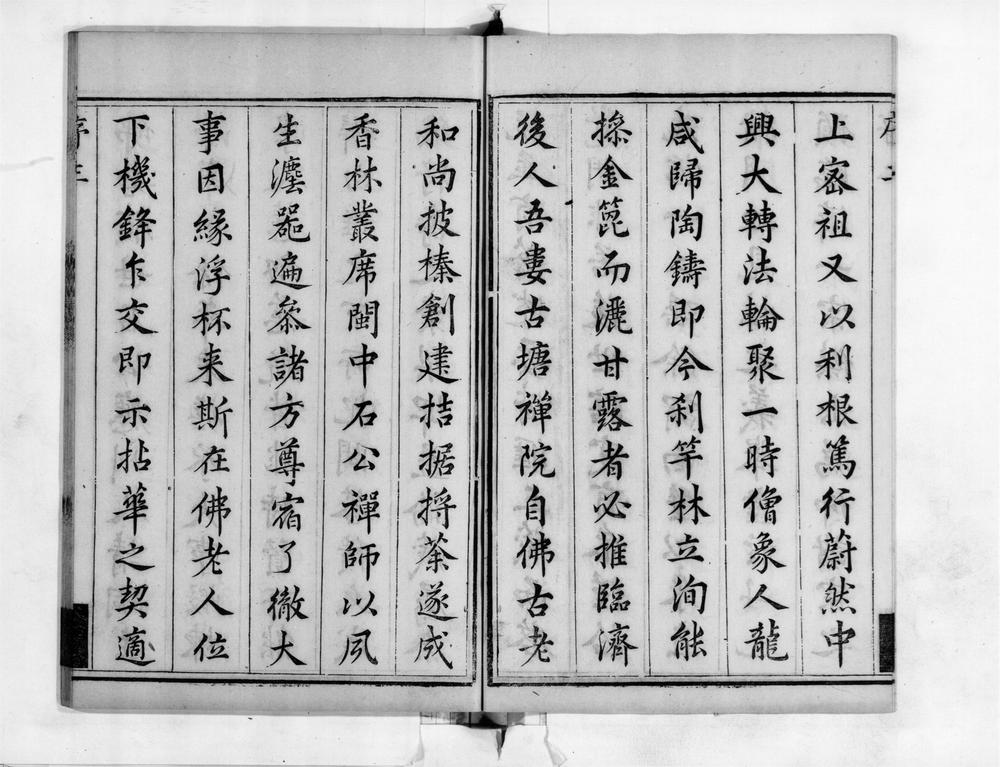 上密祖又以利根篤行蔚然中
興大轉法輪聚一時僧象人龍
咸歸陶鑄即今刹竿林立洵能
操金篦而灑甘露者必推臨濟
後人吾婁古塘禪院自佛古老
和尚披榛創建拮据捋荼遂成
香林叢席閩中石公禪師以夙
生瀍器遍叅諸方尊宿了徹大
事因緣浮杯来斯在佛老人位
下機鋒乍交即示拈華之契適
序三